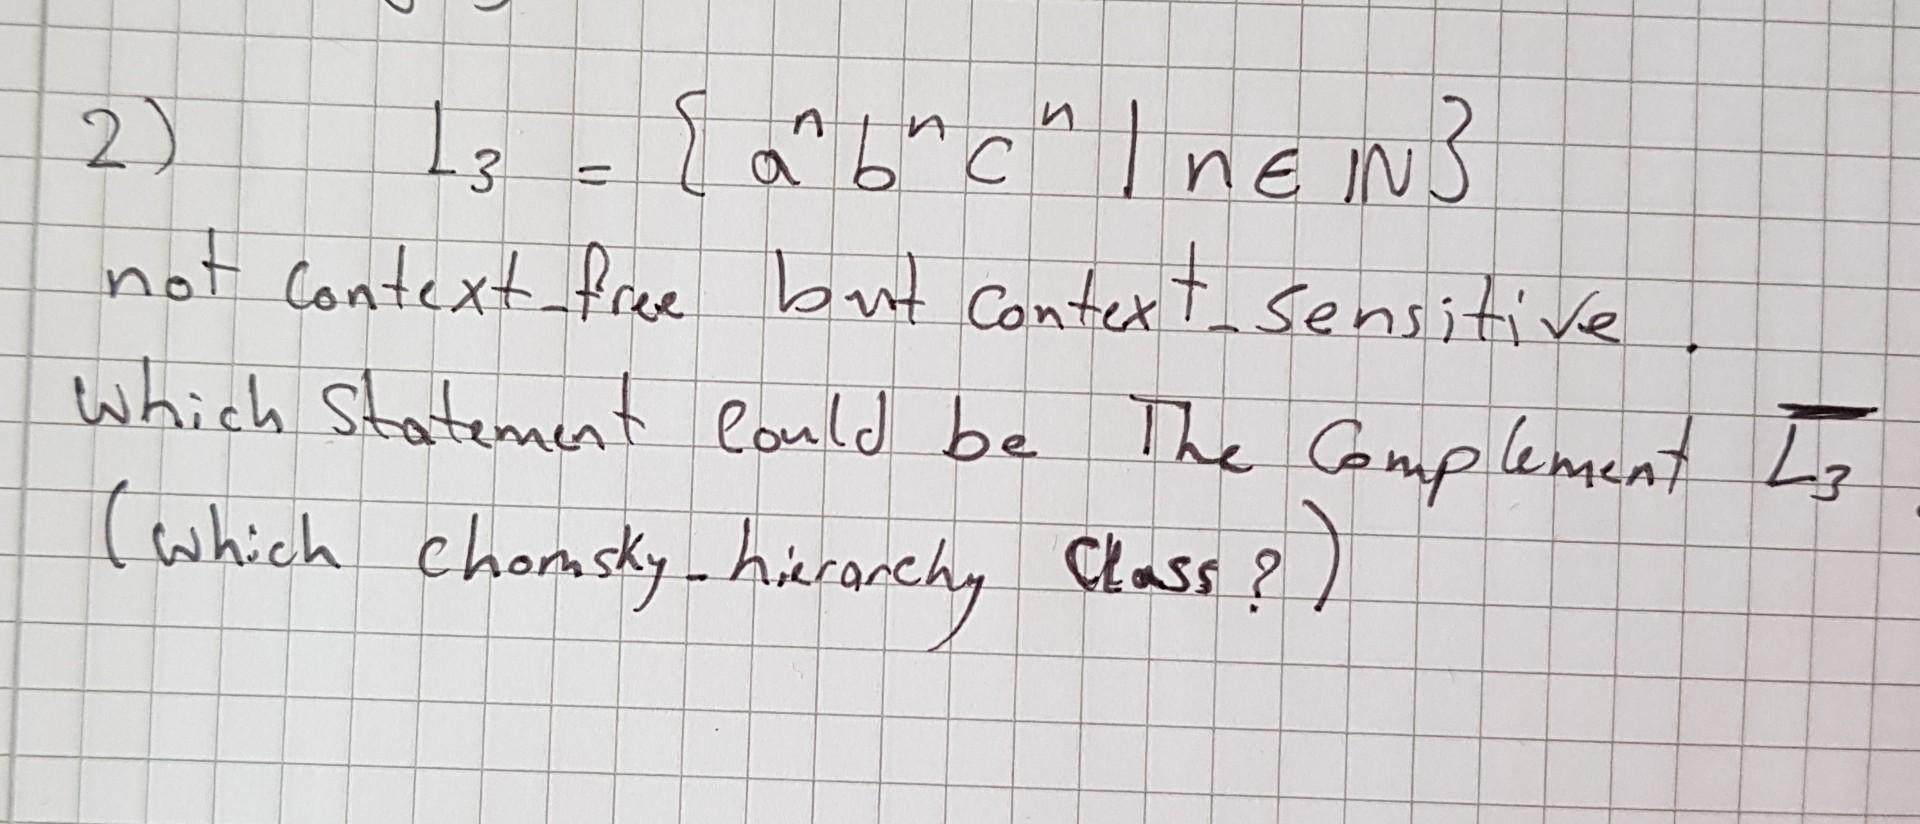 2) L₃ = { aⁿ bⁿ cⁿ | n ∈ ℕ }
not context-free but context-sensitive.
which statement could be The Complement L̅₃.
(which chomsky-hierarchy Class?)